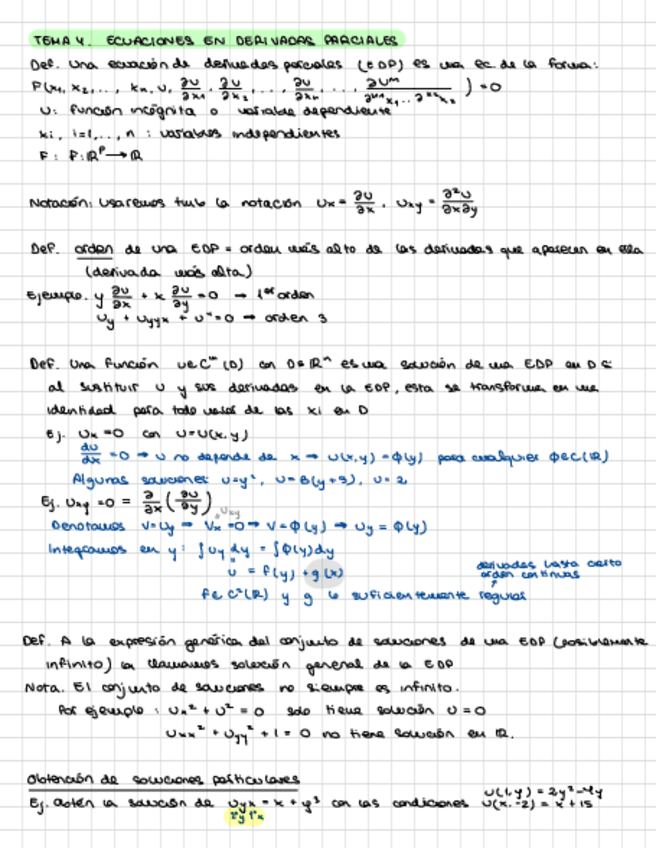 TEMA 4. ECUACIONES EN DERIVADAS PARCIALES
Def. Una ecuación de derivadas parciales (EDP) es una ec. de la forma:
F(x₁, x₂, ..., xₙ, u, ∂u/∂x₁, ∂u/∂x₂, ..., ∂u/∂xₙ, ..., ) = 0
u: función incógnita o variable dependiente
xi, i=1,...,n : variables independientes
F: F:ℝᴾ→ℝ
Notación: usaremos tmb la notación ux = ∂u/∂x, uxy = ∂²u/∂x∂y
Def. orden de una EDP = orden más alto de las derivadas que aparecen en ella
(derivada más alta)
Ejemplo. y ∂u/∂x + x ∂u/∂y = 0 → 1er orden
uy + uyyx + = 0 → orden 3
Def. Una función u∈Cᵐ(D) con D⊆ℝⁿ es una solución de una EDP en D si
al sustituir u y sus derivadas en la EDP, esta se transforma en una
identidad para todo valor de las xi en D
Ej. ux = 0 con u=u(x,y)
du/dx = 0 → u no depende de x → u(x,y) = Φ(y) para cualquier Φ∈C(ℝ)
Algunas soluciones: u=y², u= , u=2
Ej. uxy = 0 = ∂/∂x (∂u/∂y) uxy
Denotamos v=uy → vx=0 → v=Φ(y) → uy = Φ(y)
Integramos en y: ∫uy dy = ∫Φ(y)dy
u = f(y) + g(x)
derivadas hasta cierto
orden continuas
f∈C²(ℝ) y g lo suficientemente regular
Def. A la expresión genérica del conjunto de soluciones de una EDP (posiblemente
infinito) la llamamos solución general de la EDP
Nota. El conjunto de soluciones no siempre es infinito.
Por ejemplo: ux² + u² = 0 solo tiene solución u=0
uxx² + uyy² + 1 = 0 no tiene solución en ℝ.
Obtención de soluciones particulares
Ej. Obtén la solución de uyx = x + y³ con las condiciones u(1,y) = 2y²-4y
u(x,-2) = x+15